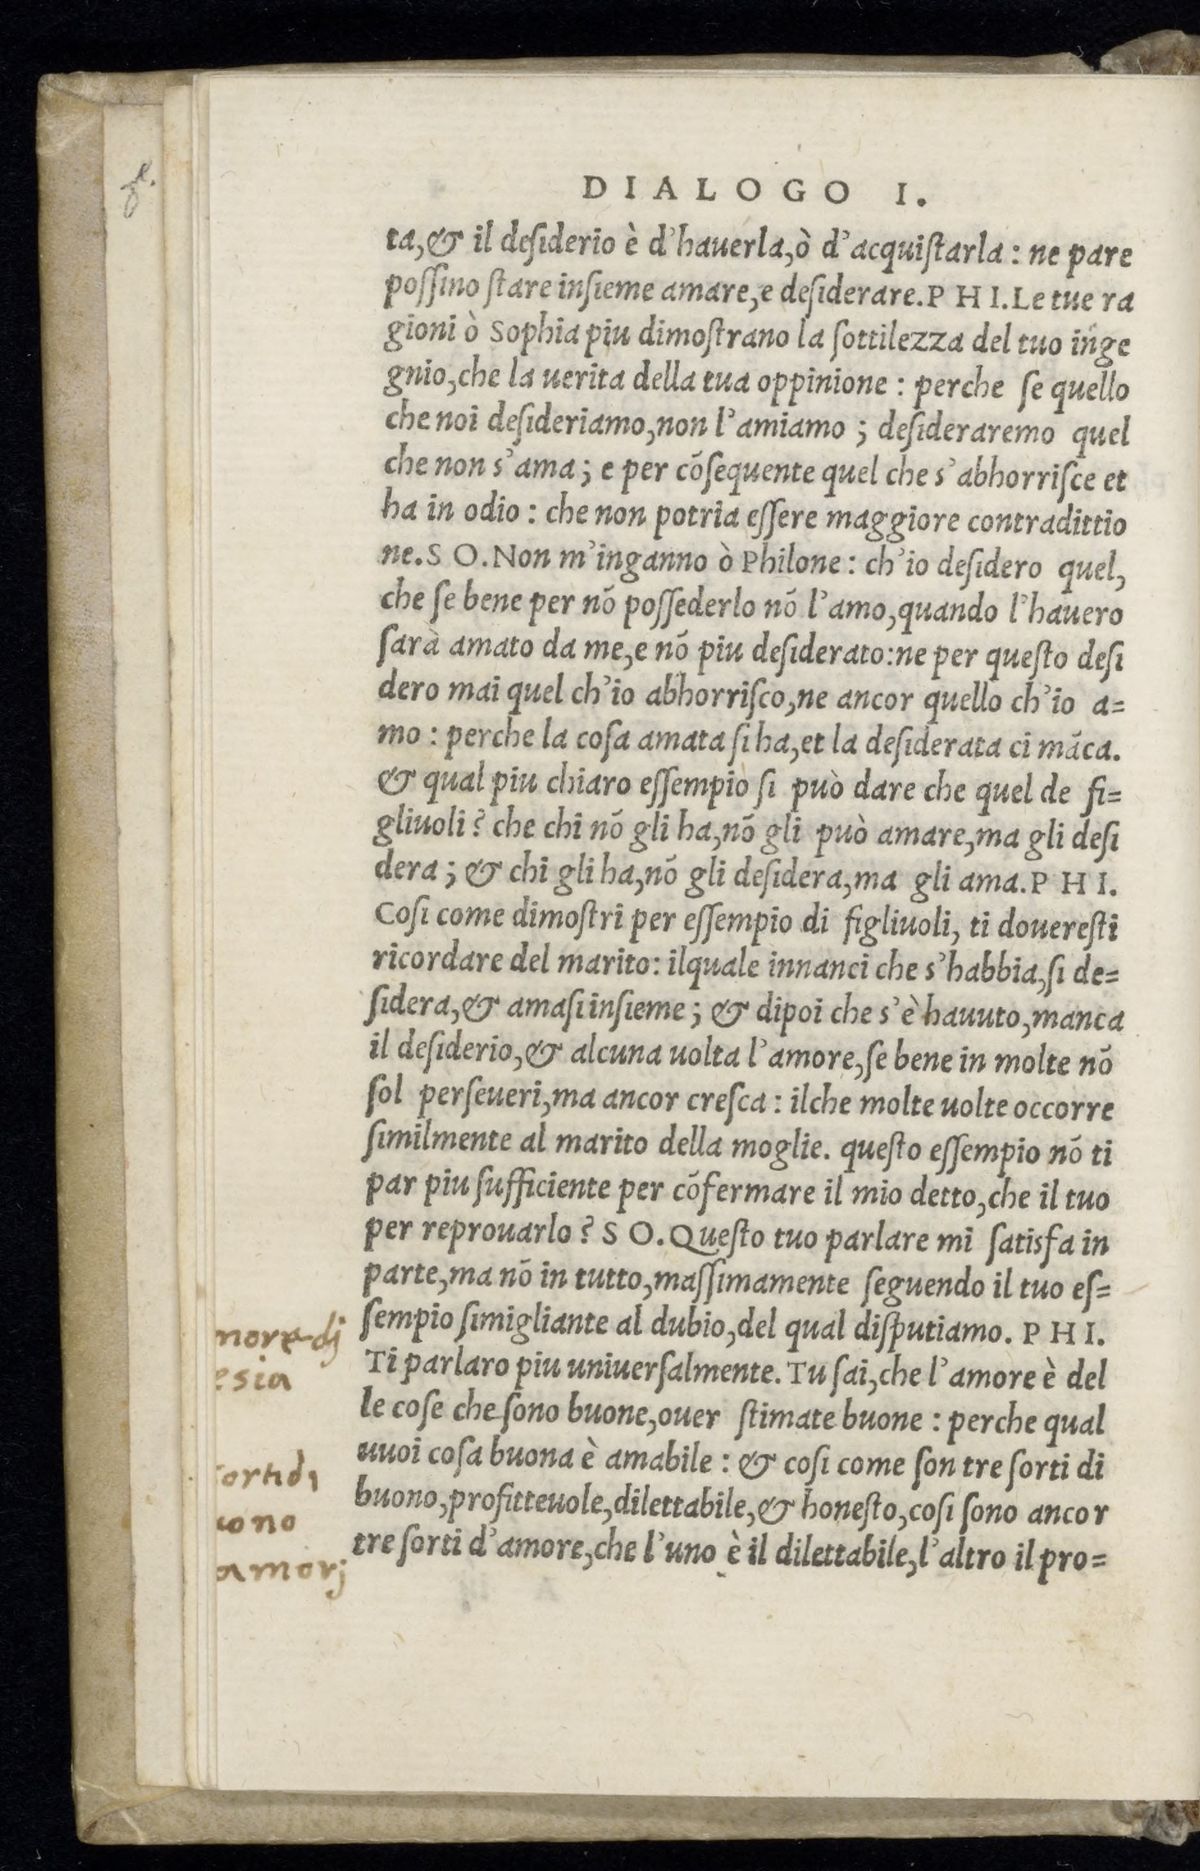 DIALOGO I.
ta,& il deſiderio è d'hauerla,ò d'acquiſtarla : ne pare
poſſino ſtare inſieme amare,e deſiderare.P H I.Le tue ra
gioni ò Sophia piu dimoſtrano la ſottilezza del tuo inge
gnio,che la uerita della tua oppinione : perche ſe quello
che noi deſideriamo,non l'amiamo ; deſideraremo quel
che non s'ama ; e per cõſequente quel che s'abhorriſce et
ha in odio : che non potria eſſere maggiore contradittio
ne.S O.Non m'inganno ò Philone : ch'io deſidero quel,
che ſe bene per nõ poſſederlo nõ l'amo,quando l'hauero
ſarà amato da me,e nõ piu deſiderato:ne per queſto deſi
dero mai quel ch'io abhorriſco,ne ancor quello ch'io a=
mo : perche la coſa amata ſi ha,et la deſiderata ci mãca.
& qual piu chiaro eſſempio ſi può dare che quel de fi=
gliuoli ? che chi nõ gli ha,nõ gli può amare,ma gli deſi
dera ; & chi gli ha,nõ gli deſidera,ma gli ama.P H I.
Coſi come dimoſtri per eſſempio di figliuoli, ti douereſti
ricordare del marito: ilquale innanci che s'habbia,ſi de=
ſidera,& amaſi inſieme ; & dipoi che s'è hauuto,manca
il deſiderio,& alcuna uolta l'amore,ſe bene in molte nõ
ſol perſeueri,ma ancor creſca : ilche molte uolte occorre
ſimilmente al marito della moglie. queſto eſſempio nõ ti
par piu ſufficiente per cõfermare il mio detto,che il tuo
per reprouarlo ? S O.Queſto tuo parlare mi ſatisfa in
parte,ma nõ in tutto,maſſimamente ſeguendo il tuo eſ=
ſempio ſimigliante al dubio,del qual diſputiamo. P H I.
Ti parlaro piu uniuerſalmente. Tu ſai,che l'amore è del
le coſe che ſono buone,ouer ſtimate buone : perche qual
uuoi coſa buona è amabile : & coſi come ſon tre ſorti di
buono,profitteuole,dilettabile,& honeſto,coſi ſono ancor
tre ſorti d'amore,che l'uno è il dilettabile,l'altro il pro=
more dj
esia
sorti di
uono
amorj